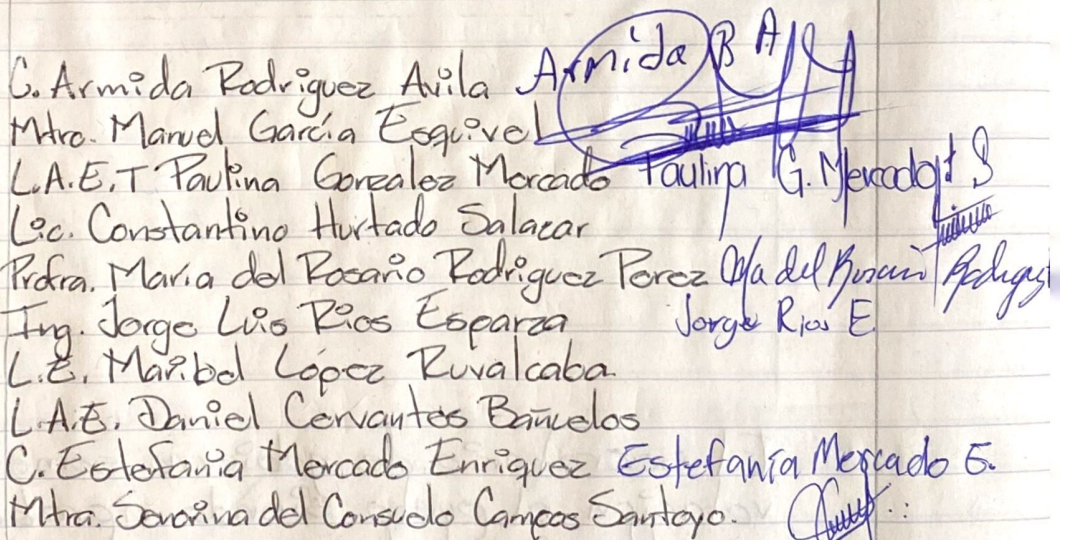 C. Armida Rodriguez Avila Armida R A
Mtro. Manuel García Esquivel
L.A.E.T Paulina Gonzalez Mercado Paulina G. Mercado
Lic. Constantino Hurtado Salazar
Profra. María del Rosario Rodriguez Perez Ma del Rosario Rodriguez
Ing. Jorge Luis Rios Esparza Jorge Rios E
L.E. Maribel López Ruvalcaba.
L.A.E. Daniel Cervantes Bañuelos
C. Estefanía Mercado Enriquez Estefanía Mercado E.
Mtra. Severina del Consuelo Campos Santoyo.